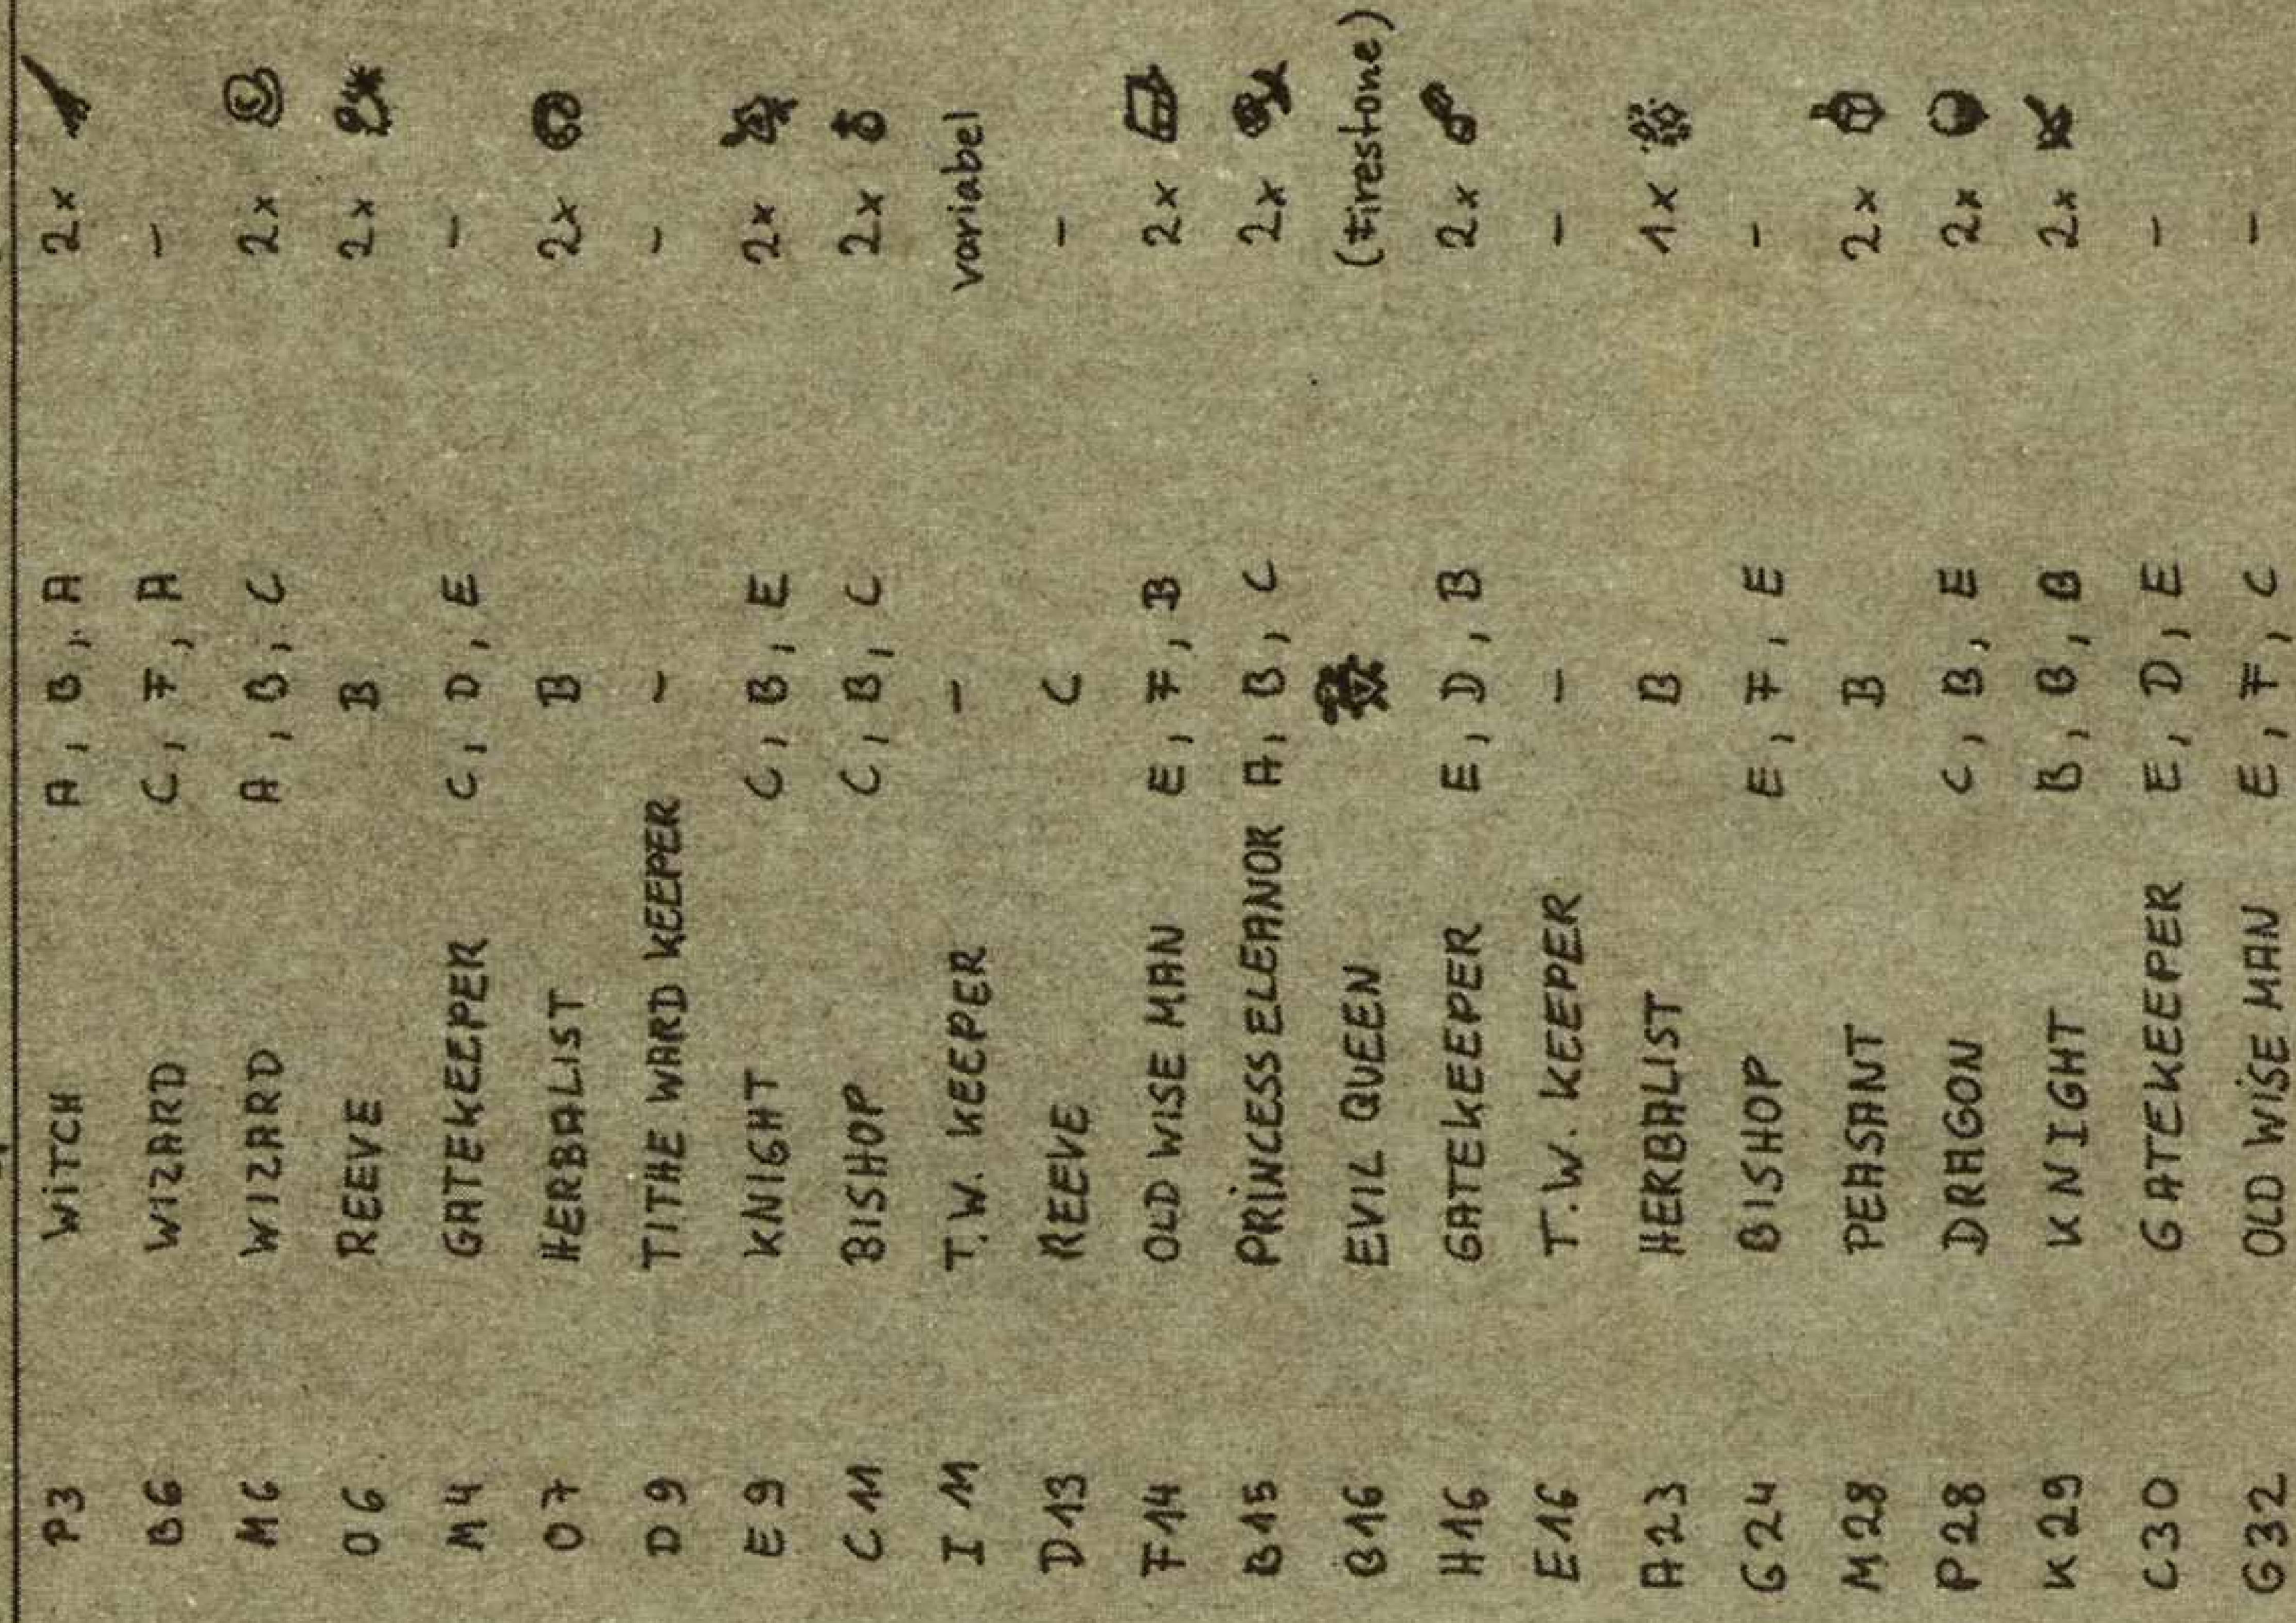 P3 WITCH A, B, A 2x
B6 WIZARD C, F, A -
M6 WIZARD A, B, C 2x
O6 REEVE B 2x
M4 GATEKEEPER C, D, E -
O7 HERBALIST B 2x
D9 TITHE WARD KEEPER - -
E9 KNIGHT C, B, E 2x
C11 BISHOP C, B, C 2x
I11 T.W. KEEPER - variabel
D13 REEVE C -
F14 OLD WISE MAN E, F, B 2x
B15 PRINCESS ELEANOR A, B, C 2x
B16 EVIL QUEEN (Firestone)
H16 GATEKEEPER E, D, B 2x
E16 T.W. KEEPER - -
A23 HERBALIST B 1x
G24 BISHOP E, F, E -
M28 PEASANT B 2x
P28 DRAGON C, B, E 2x
K29 KNIGHT B, B, B 2x
C30 GATEKEEPER E, D, E -
G32 OLD WISE MAN E, F, C -